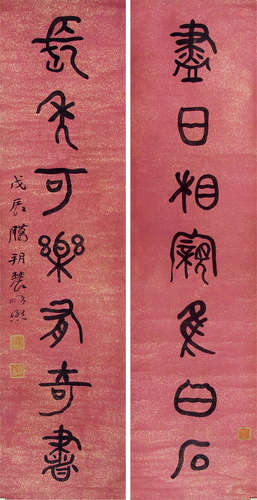 盡日相親隹白石
長年可樂有奇書
戊辰臘朔